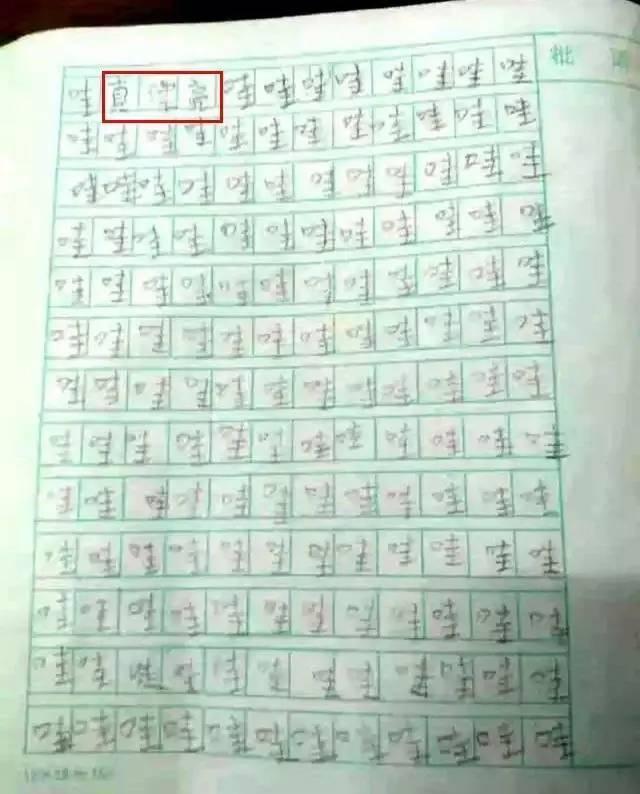 哇真漂亮哇哇哇哇哇哇哇哇
哇哇哇哇哇哇哇哇哇哇哇哇
哇哇哇哇哇哇哇哇哇哇哇哇
哇哇哇哇哇哇哇哇哇哇哇哇
哇哇哇哇哇哇哇哇哇哇哇哇
哇哇哇哇哇哇哇哇哇哇哇哇
哇哇哇哇哇哇哇哇哇哇哇哇
哇哇哇哇哇哇哇哇哇哇哇哇
哇哇哇哇哇哇哇哇哇哇哇哇
哇哇哇哇哇哇哇哇哇哇哇哇
哇哇哇哇哇哇哇哇哇哇哇哇
哇哇哇哇哇哇哇哇哇哇哇哇
哇哇哇哇哇哇哇哇哇哇哇哇
批